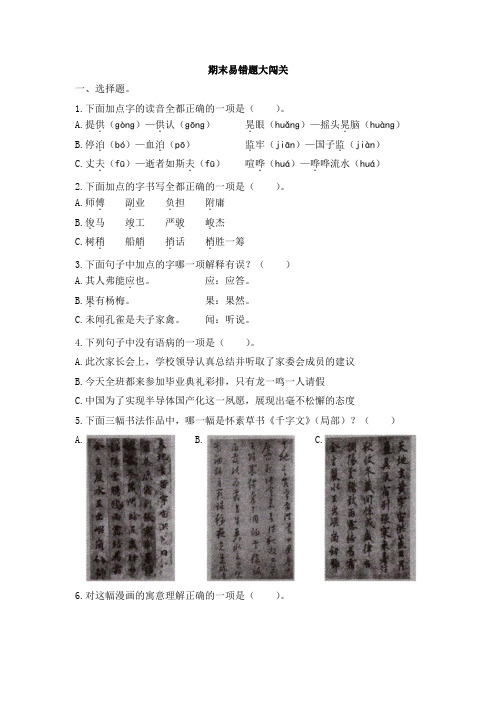 期末易错题大闯关
一、选择题。
1.下面加点字的读音全都正确的一项是（ ）。
A.提供（gòng）—供认（gōng） 晃眼（huǎng）—摇头晃脑（huàng）
B.停泊（bó）—血泊（pō） 监牢（jiān）—国子监（jiàn）
C.丈夫（fū）—逝者如斯夫（fū） 喧哗（huá）—哗哗流水（huá）
2.下面加点的字书写全都正确的一项是（ ）。
A.师傅 副业 负担 附庸
B.俊马 竣工 严骏 峻杰
C.树稍 船艄 捎话 梢胜一筹
3.下面句子中加点的字哪一项解释有误？（ ）
A.其人弗能应也。 应：应答。
B.果有杨梅。 果：果然。
C.未闻孔雀是夫子家禽。 闻：听说。
4.下列句子中没有语病的一项是（ ）。
A.此次家长会上，学校领导认真总结并听取了家委会成员的建议
B.今天全班都来参加毕业典礼彩排，只有龙一鸣一人请假
C.中国为了实现半导体国产化这一夙愿，展现出毫不松懈的态度
5.下面三幅书法作品中，哪一幅是怀素草书《千字文》（局部）？（ ）
A. B. C.
6.对这幅漫画的寓意理解正确的一项是（ ）。